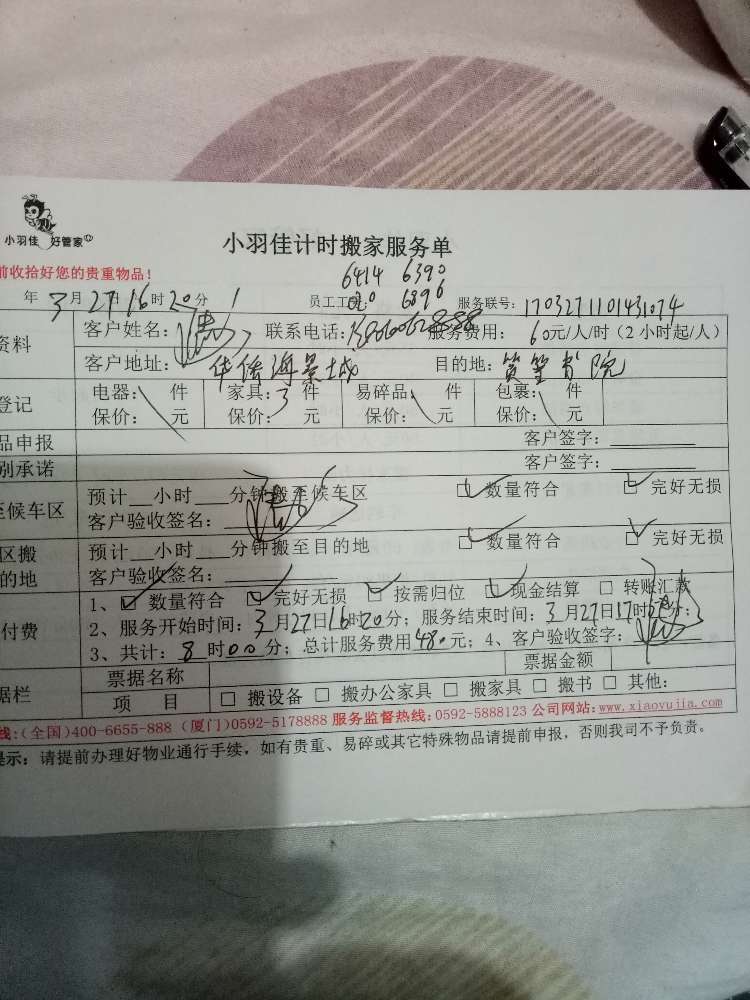 小羽佳 好管家
小羽佳计时搬家服务单
前收拾好您的贵重物品!
6414 6390
年3月27日16时20分 员工工号: 020 6896 服务联号: 1703271101431074
资料 客户姓名: 联系电话: 服务费用: 60元/人/时(2小时起/人)
客户地址: 华侨海景城 目的地: 筼筜书院
登记 电器: 件 家具:3件 易碎品: 件 包裹: 件
保价: 元 保价: 元 保价: 元 保价: 元
品申报 客户签字:
别承诺 客户签字:
至候车区 预计__小时___分钟搬至候车区 ☑ 数量符合 ☑ 完好无损
客户验收签名:
区搬 预计__小时___分钟搬至目的地 ☑ 数量符合 ☑ 完好无损
的地 客户验收签名:
1、☑ 数量符合 ☑ 完好无损 ☑ 按需归位 ☑ 现金结算 □ 转账汇款
付费 2、服务开始时间:3月27日16时20分; 服务结束时间:3月27日17时 分;
3、共计:8时00分; 总计服务费用480元; 4、客户验收签字:
据栏 票据名称 票据金额
项 目 □ 搬设备 □ 搬办公家具 □ 搬家具 □ 搬书 □ 其他:
线:(全国)400-6655-888 (厦门)0592-5178888 服务监督热线:0592-5888123 公司网站:www.xiaoyujia.com
提示: 请提前办理好物业通行手续,如有贵重、易碎或其它特殊物品请提前申报,否则我司不予负责。